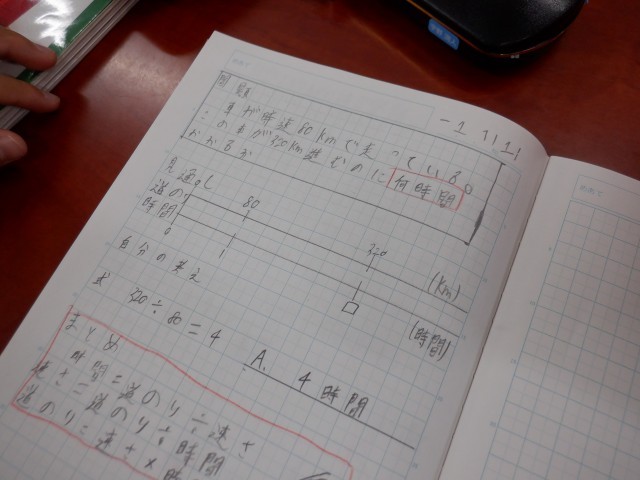 問題
車が時速80kmで走っている。
この車が320km進むのに何時間
かかるか
見通し
道のり 0 80 320 (km)
時間 0 1 □ (時間)
自分の考え
式 320÷80=4
A. 4時間
まとめ
時間=道のり÷速さ
速さ=道のり÷時間
道のり=速さ×時